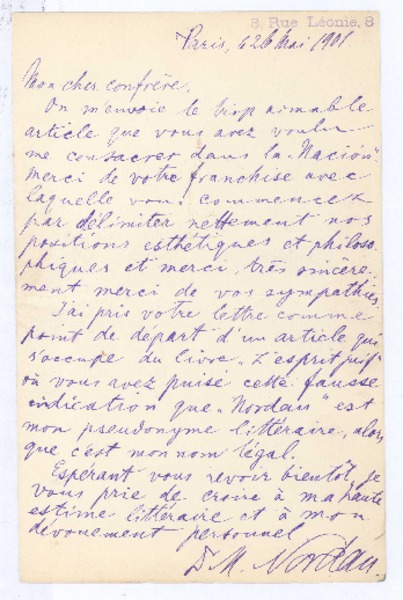 8, Rue Léonie, 8
Paris, le 26 Mai 1901
Mon cher confrère,
On m'envoie le trop aimable
article que vous avez voulu
me consacrer dans la „Nación"
merci de votre franchise avec
laquelle vous commencez
par délimiter nettement nos
positions esthétiques et philoso-
phiques et merci, très sincère-
ment merci de vos sympathies.
J'ai pris votre lettre comme
point de départ d'un article qui
s'occupe du livre „L'esprit juif"
où vous avez puisé cette fausse
indication que „Nordau" est
mon pseudonyme littéraire, alors
que c'est mon nom légal.
Espérant vous revoir bientôt, je
vous prie de croire à ma haute
estime littéraire et à mon
dévouement personnel
Dr M. Nordau.